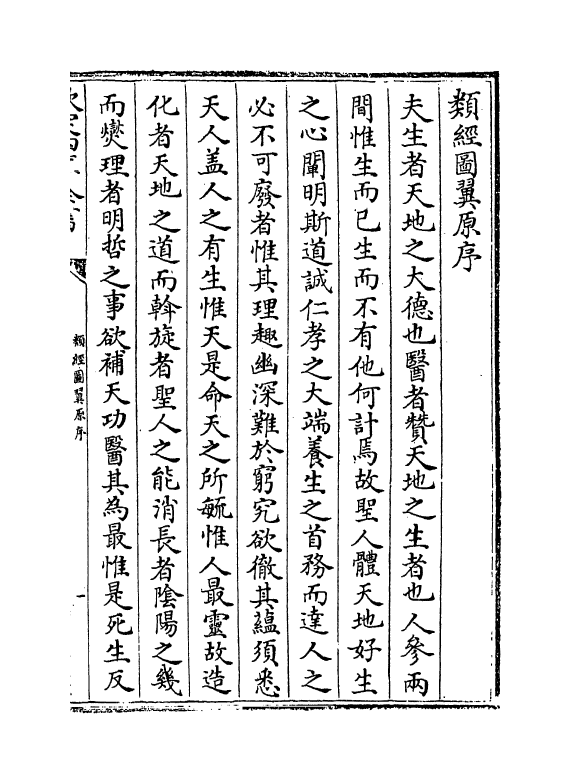 類經圖翼原序
夫生者天地之大德也醫者贊天地之生者也人參兩
間惟生而已生而不有他何計焉故聖人體天地好生
之心闡明斯道誠仁孝之大端養生之首務而達人之
必不可廢者惟其理趣幽深難於窮究欲徹其蘊須悉
天人盖人之有生惟天是命天之所毓惟人最靈故造
化者天地之道而斡旋者聖人之能消長者陰陽之幾
而爕理者明哲之事欲補天功醫其為最惟是死生反
類經圖翼原序
一